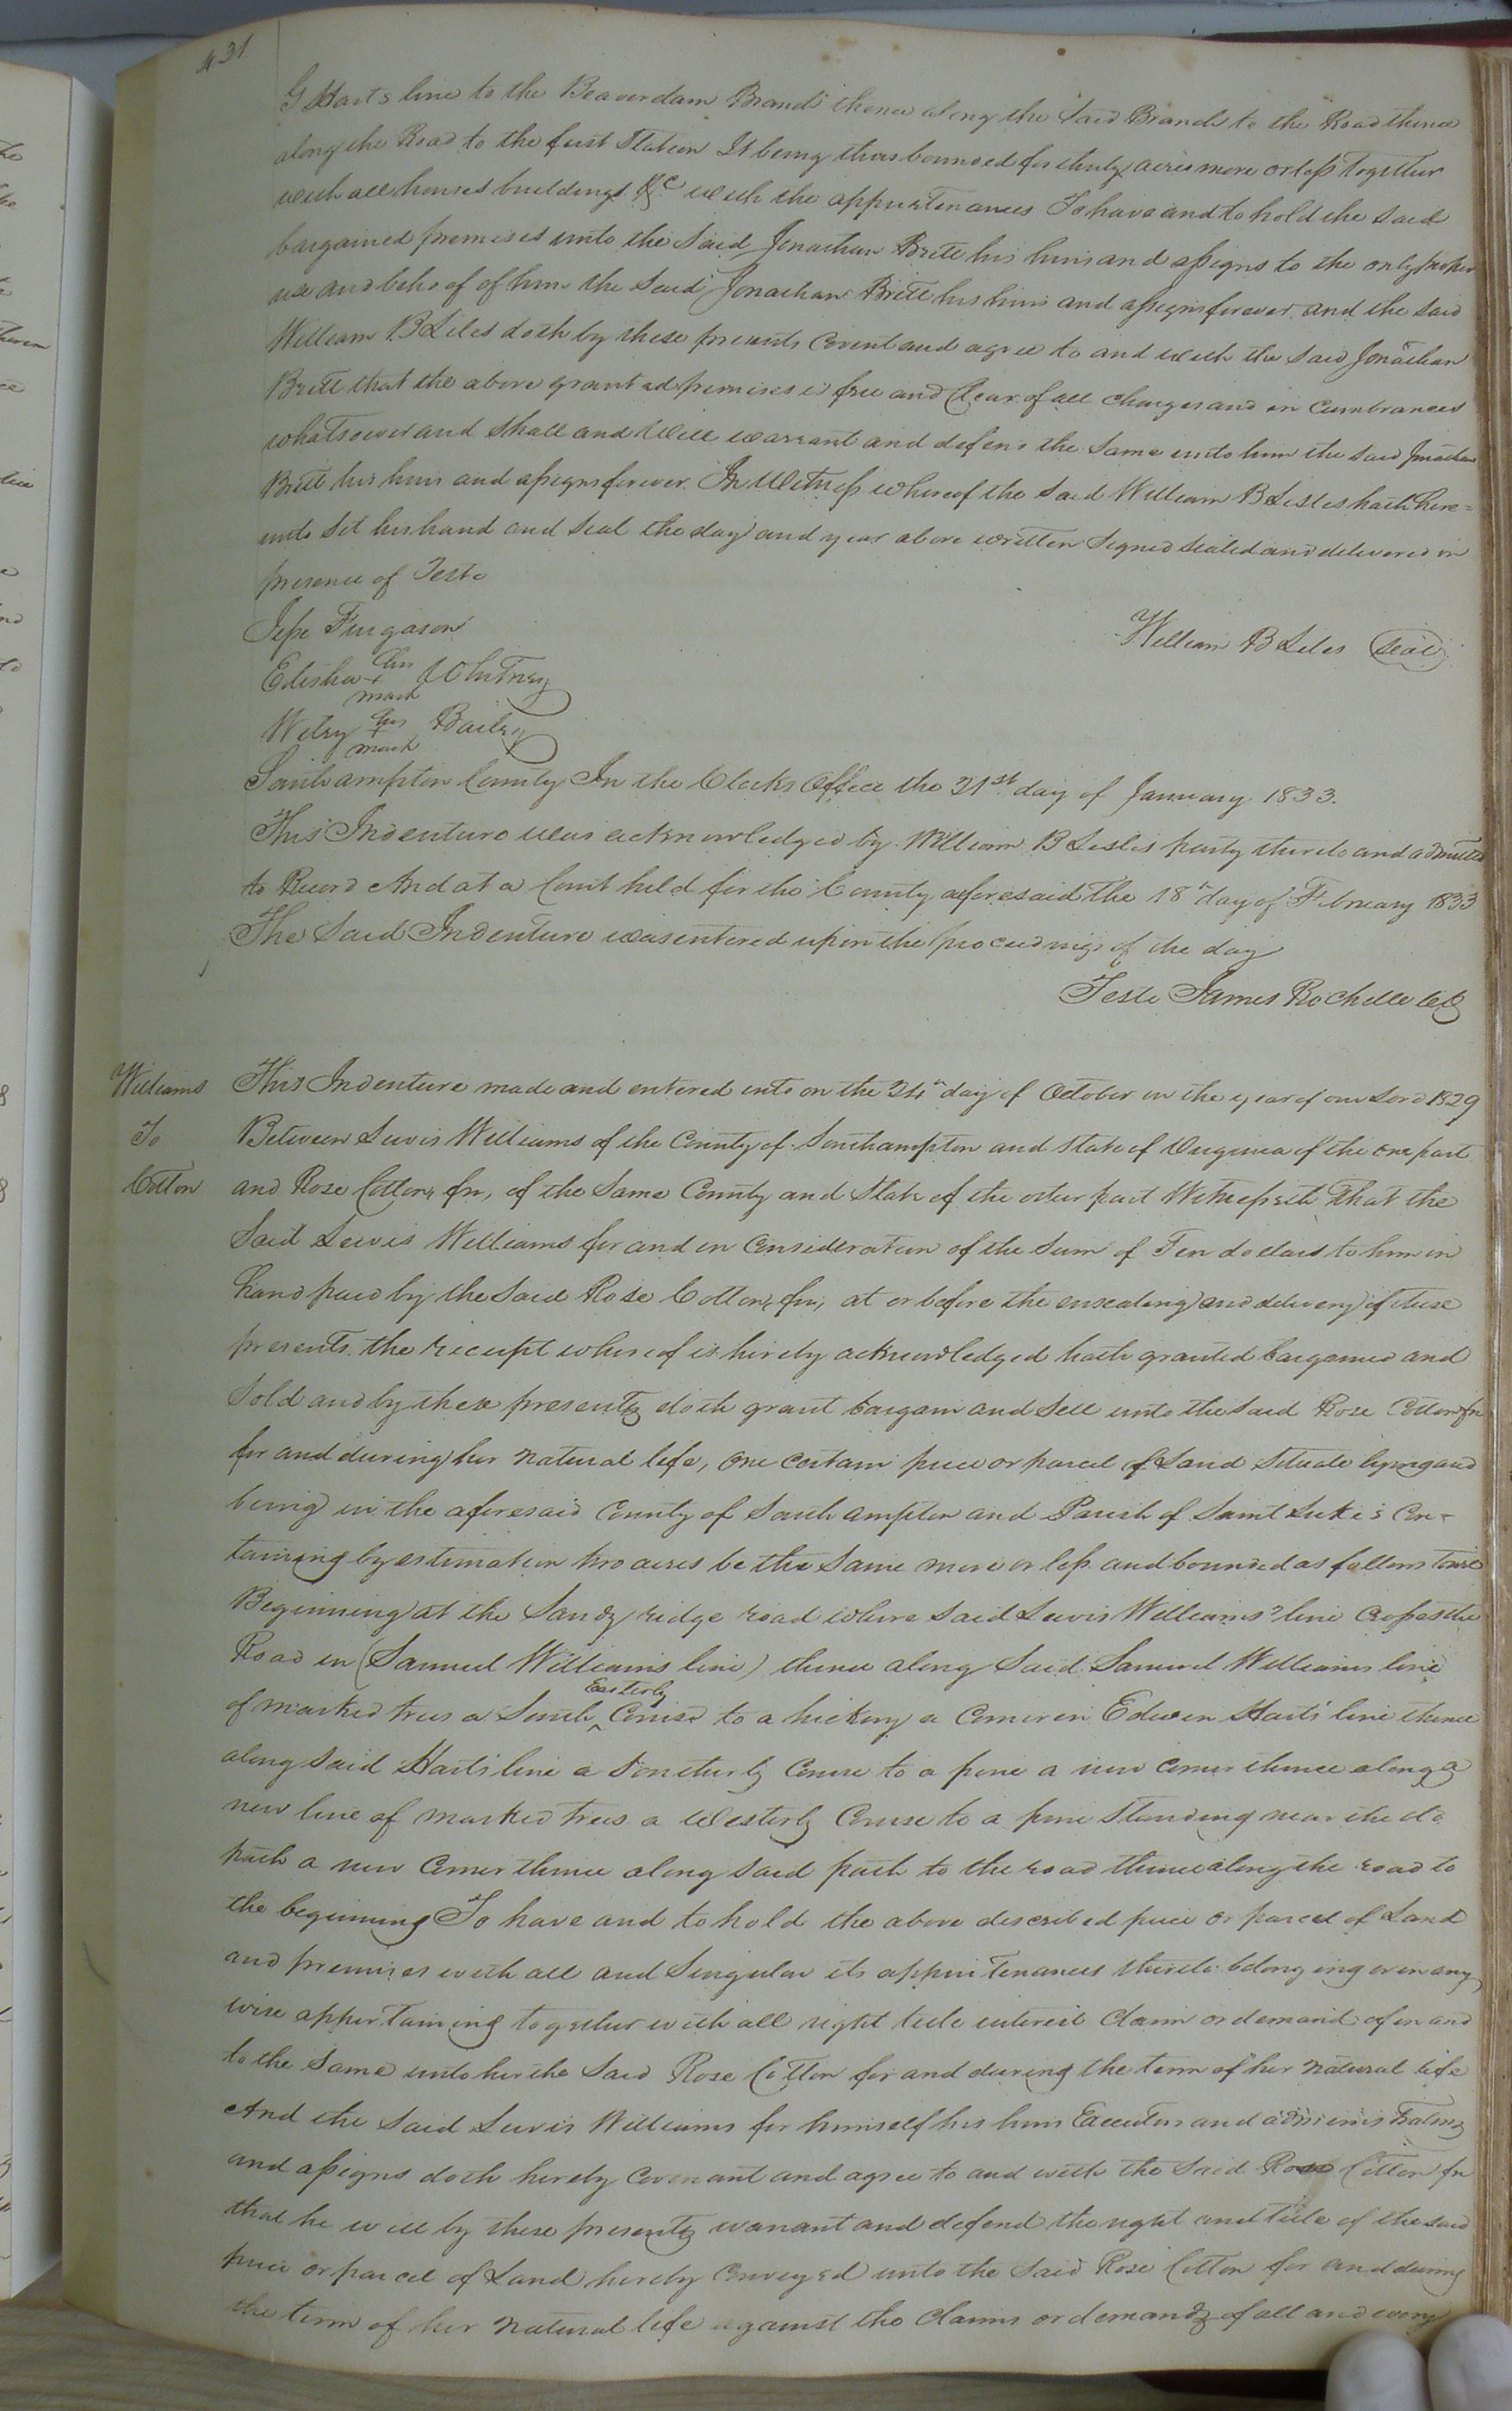 431
G Harts line to the Beaverdam Branch thence along the Said Branch to the Road thence
along the Road to the first Station It being thus bounded for thirty acres more or less together
with all houses buildings &c with the appurtenances To have and to hold the said
bargained premises unto the Said Jonathan Britt his heirs and assigns to the only proper
use and behoof of him the Said Jonathan Britt his heirs and assigns forever. and the said
William B Liles doth by these presents Covenant and agree to and with the said Jonathan
Britt that the above granted premises is free and Clear of all charges and in Cumbrances
whatsoever and Shall and Will warrant and defend the Same unto him the said Jonathan
Britt his heirs and assigns forever. In Witness whereof the Said William B Liles hath here=
unto Set his hand and Seal the day and year above written Signed Sealed and delivered in
presence of Teste
Jesse Furgason
William B Liles Seal
Elisha his + mark Whitney
Wiley his + mark Bailey
Southampton County In the Clerks Office the 21st day of January 1833.
This Indenture was acknowledged by William B Liles party thereto and admitted
to Record And at a Court held for the County aforesaid the 18th day of February 1833
The Said Indenture was entered upon the proceedings of the day
Teste James Rochelle
Williams
To
Cotton
This Indenture made and entered into on the 24th day of October in the year of our Lord 1829
Between Lewis Williams of the County of Southampton and State of Virginia of the one part
and Rose Cotton, fn, of the Same County and State of the other part Witnesseth That the
Said Lewis Williams for and in Consideration of the Sum of Ten dollars to him in
hand paid by the Said Rose Cotton, fn, at or before the ensealing and delivery of these
presents. the receipt whereof is hereby acknowledged hath granted bargained and
Sold and by these presents doth grant bargain and Sell unto the said Rose Cotton fn
for and during her natural life, one certain piece or parcel of Land Situate lying and
being in the aforesaid County of Southampton and Parish of Saint Luke's Con-
taining by estimation two acres be the Same more or less and bounded as follows towit
Beginning at the Sandy ridge road where Said Lewis Williams' line Crosses the
Road in (Samuel Williams line) thence along Said Samuel Williams line
of marked trees a South Easterly Course to a hickory a Corner in Edwin Harts' line thence
along Said Harts' line a Southerly Course to a pine a new corner thence along a
new line of marked trees a Westerly Course to a pine Standing near the
path a new Corner thence along Said path to the road thence along the road to
the beginning To have and to hold the above described piece or parcel of Land
and premises with all and Singular its appurtenances thereto belonging or in any
wise appertaining together with all right title interest Claim or demand of in and
to the Same unto her the Said Rose Cotton for and during the term of her natural life
And the Said Lewis Williams for himself his heirs Executors and administrators
and assigns doth hereby Covenant and agree to and with the Said Rose Cotton fn
that he will by these presents warrant and defend the right and title of the said
piece or parcel of Land hereby Conveyed unto the Said Rose Cotton for and during
the term of her natural life against the Claims or demands of all and every